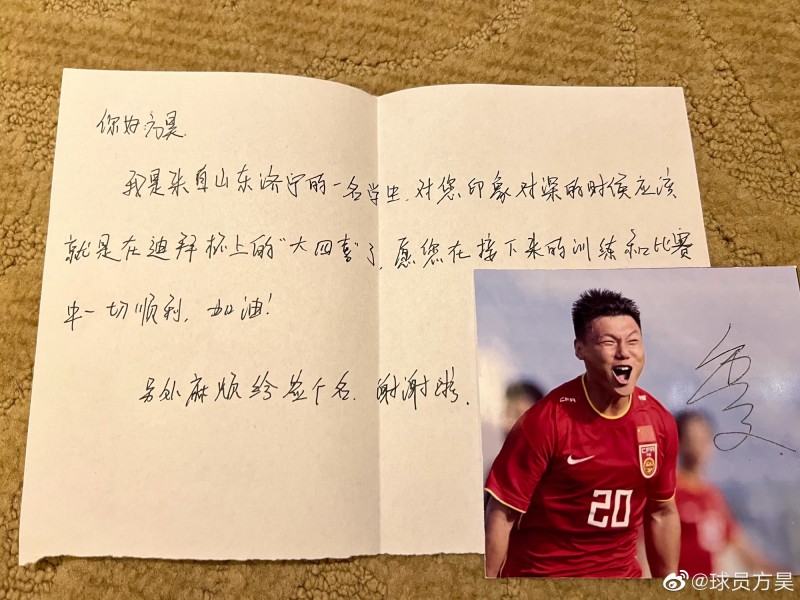 你好方昊
我是来自山东济宁的一名学生,对您印象对深的时候应该
就是在迪拜杯上的"大四喜"了,愿您在接下来的训练和比赛
中一切顺利,加油!
另外麻烦给签个名,谢谢啦.
CFA
20
@球员方昊